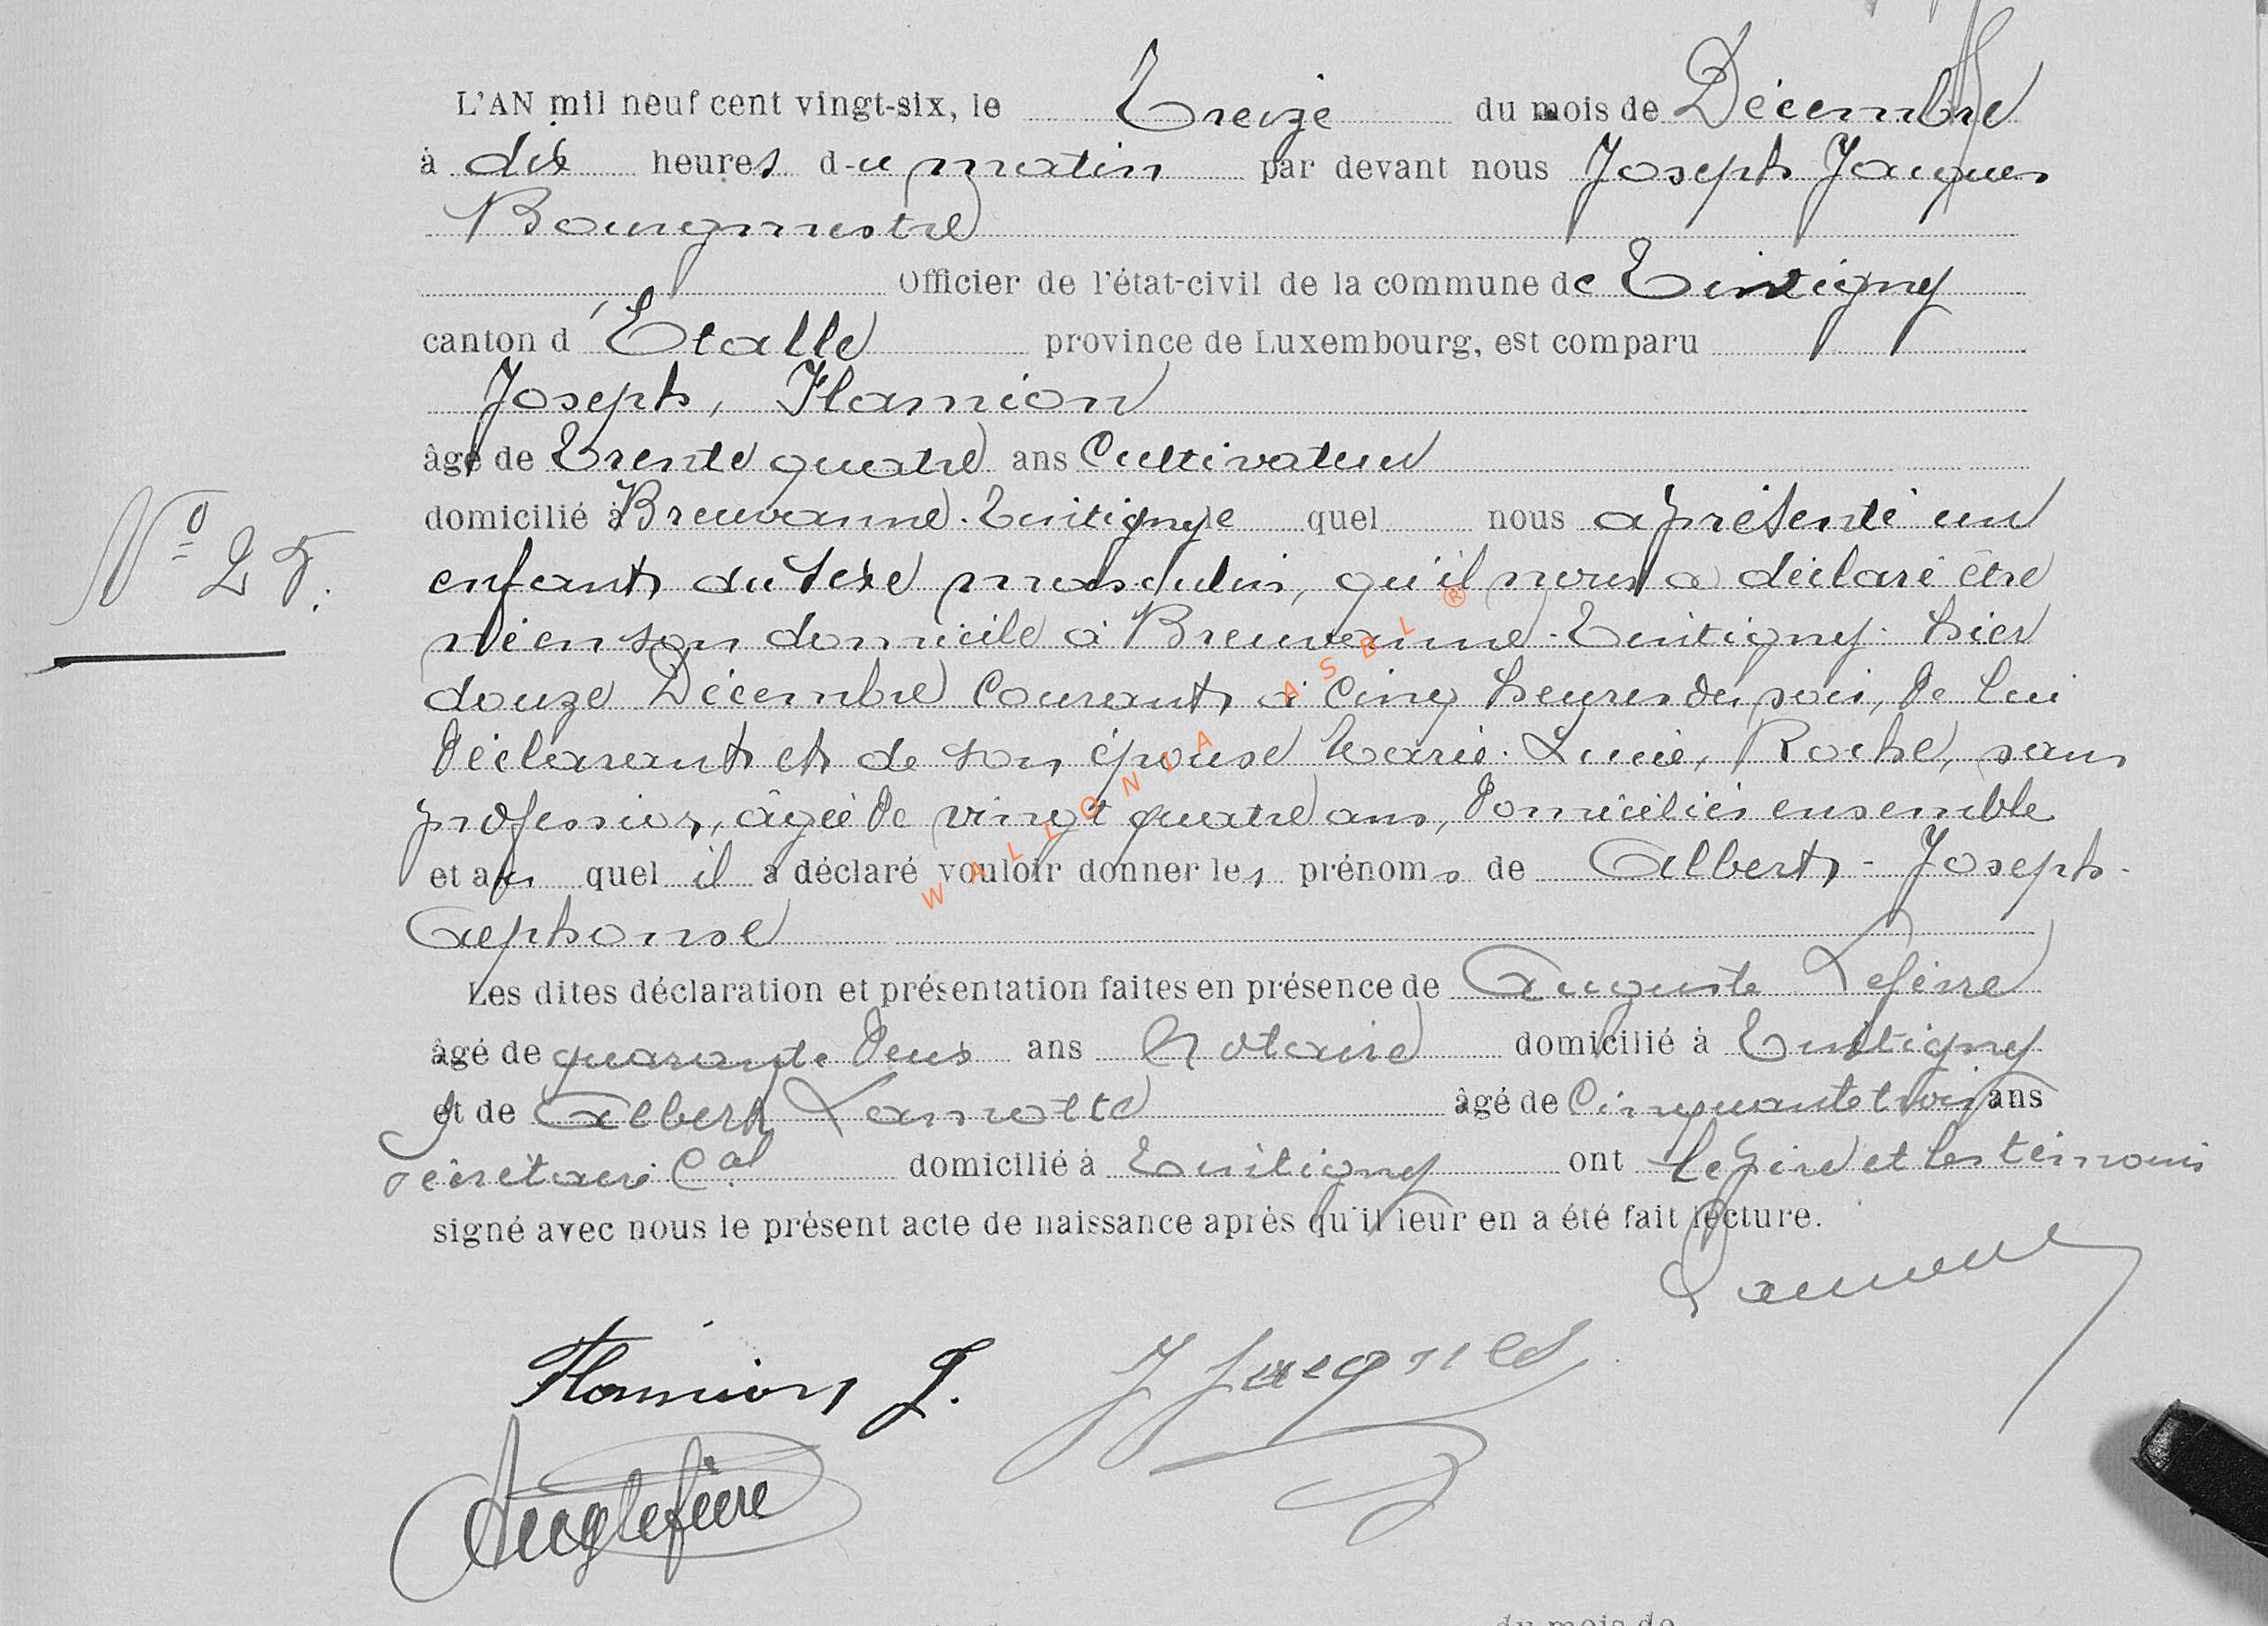 L'AN mil neuf cent vingt-six, le Treize du mois de Décembre
à dix heures d-u matin par devant nous Joseph Jacques
Bourgmestre
Officier de l'état-civil de la commune de Tintigny
canton d'Etalle province de Luxembourg, est comparu
Joseph, Flamion
âgé de Trente quatre ans Cultivateur
domicilié à Breuvanne-Tintigny le quel nous a présenté un
N° 25.
enfant du sexe masculin, qu'il nous a déclaré être
né en son domicile à Breuvanne-Tintigny. hier
douze Décembre Courant à Cinq heures du soir, de lui
déclarant et de son épouse Marie-Lucie, Roche, sans
profession, âgée de vingt quatre ans, domiciliés ensemble
et au quel il a déclaré vouloir donner les prénoms de Albert-Joseph-
Alphonse
Les dites déclaration et présentation faites en présence de Auguste Lefèvre
âgé de quarante deux ans Notaire domicilié à Tintigny
et de Albert Lamotte âgé de Cinquante trois ans
secrétaire Cal domicilié à Tintigny ont le père et les témoins
signé avec nous le présent acte de naissance après qu'il leur en a été fait lecture.
Flamion J. J Jacques
Aug Lefèvre
WALLONIA ASBL ®
du mois de